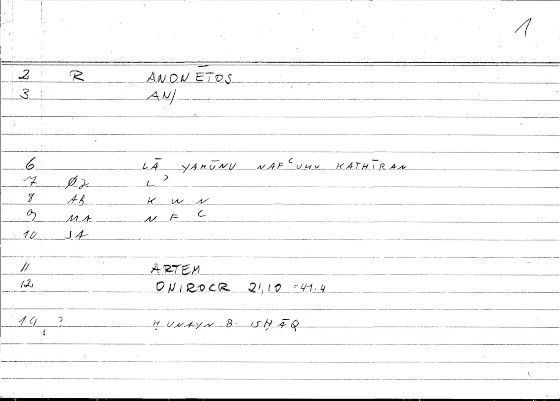 1
2 R ANONĒTOS
3 AN/
6 LĀ YAKŪNU NAFᶜUHU KATHĪRAN
7 Ø2 Lʾ
8 AB K W N
9 MA N F ᶜ
10 SA
11 ARTEM
12 ONIROCR 21,10 = 41.4
14 ? ḤUNAYN B. ISḤĀQ